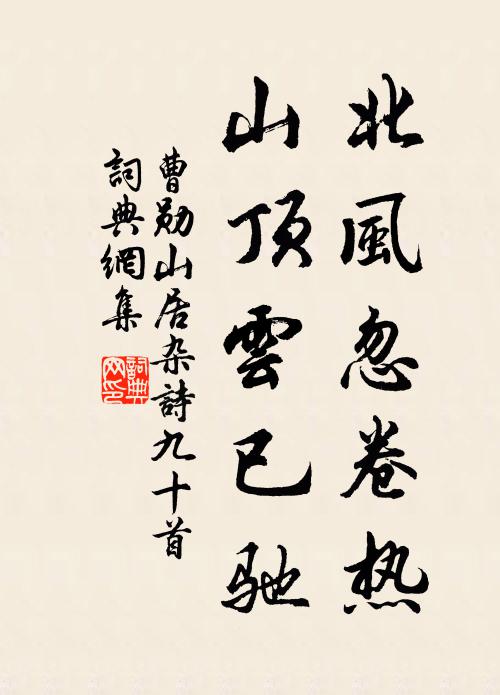 北風忽卷热
山顶雲已驰
曹勋山居杂詩九十首
詞典網集
詞典
网印